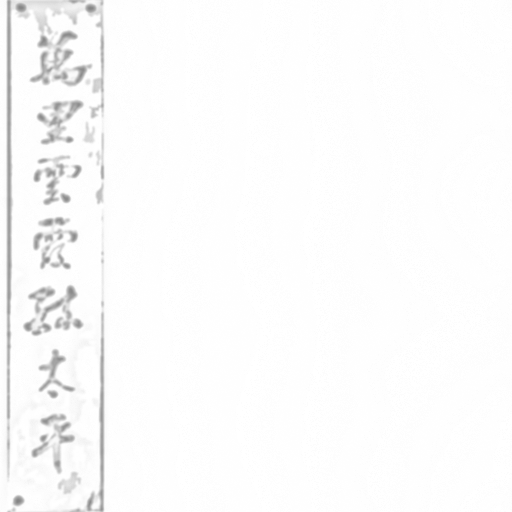 萬里雲霞點太平